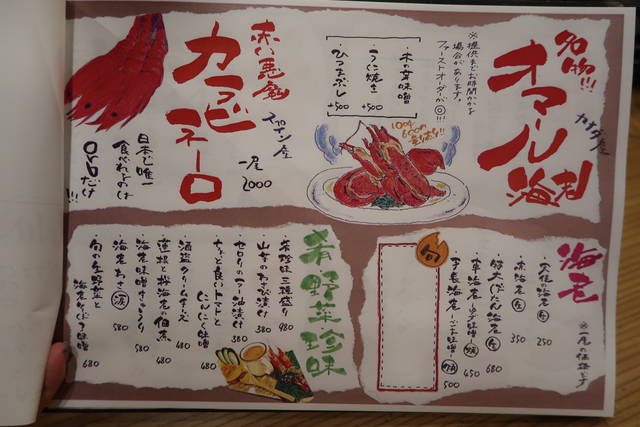 名物!!!
オマール海老
カナダ産
※提供までお時間かかる
場合があります。
ファーストオーダーが◎!!!
・木の芽味噌
・うに焼き +500
・ひつまぶし +500
赤い悪魔
カラビネーロ
スペイン産
一尾
2000
日本で唯一
食べれるのは
orbだけ
!!!
海老
※一尾の価格です
・天使の海老 生 250
・赤海老 生 350
・特大ぼたん海老 生 680
・車海老 ~ゆず味噌~ 焼 450
・手長海老 ~ごま味噌~ 焼 500
旬
肴 野菜 珍味
・茶珍味三種盛り 980
・山芋のわさび漬け 380
・セロリのラー油漬け 380
・ちょっと良いトマトと
にんにく味噌 480
・酒盗クリームチーズ 480
・蓮根と桜海老の佃煮 480
・海老味噌きゅうり 580
・海老わさ 580
・旬の生野菜と
海老みそ味噌 680